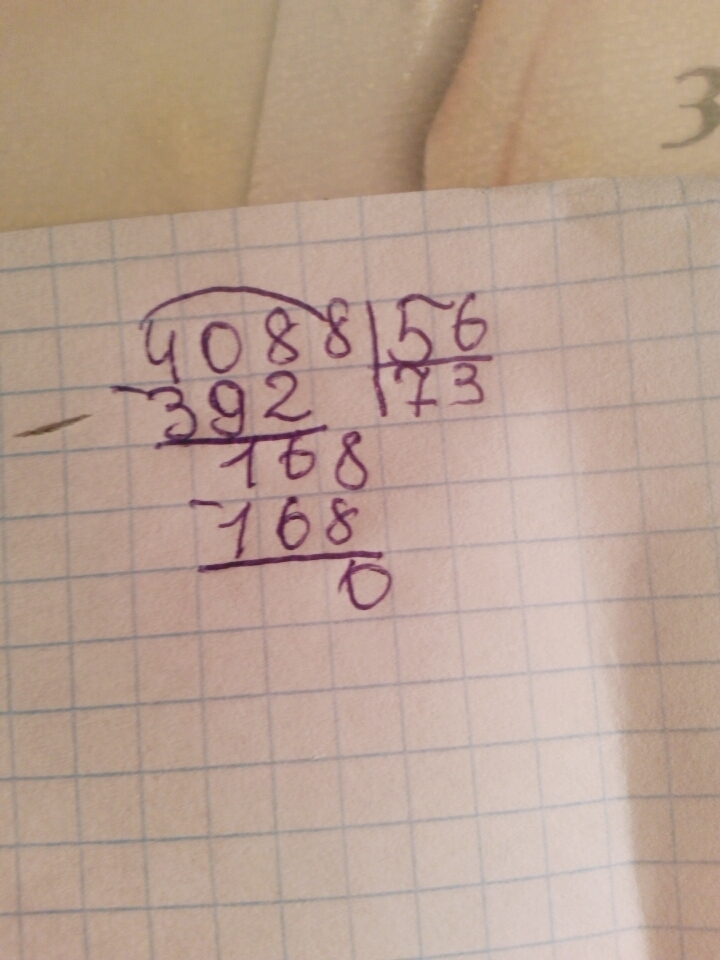 3
4088 56
-392 73
168
-168
0